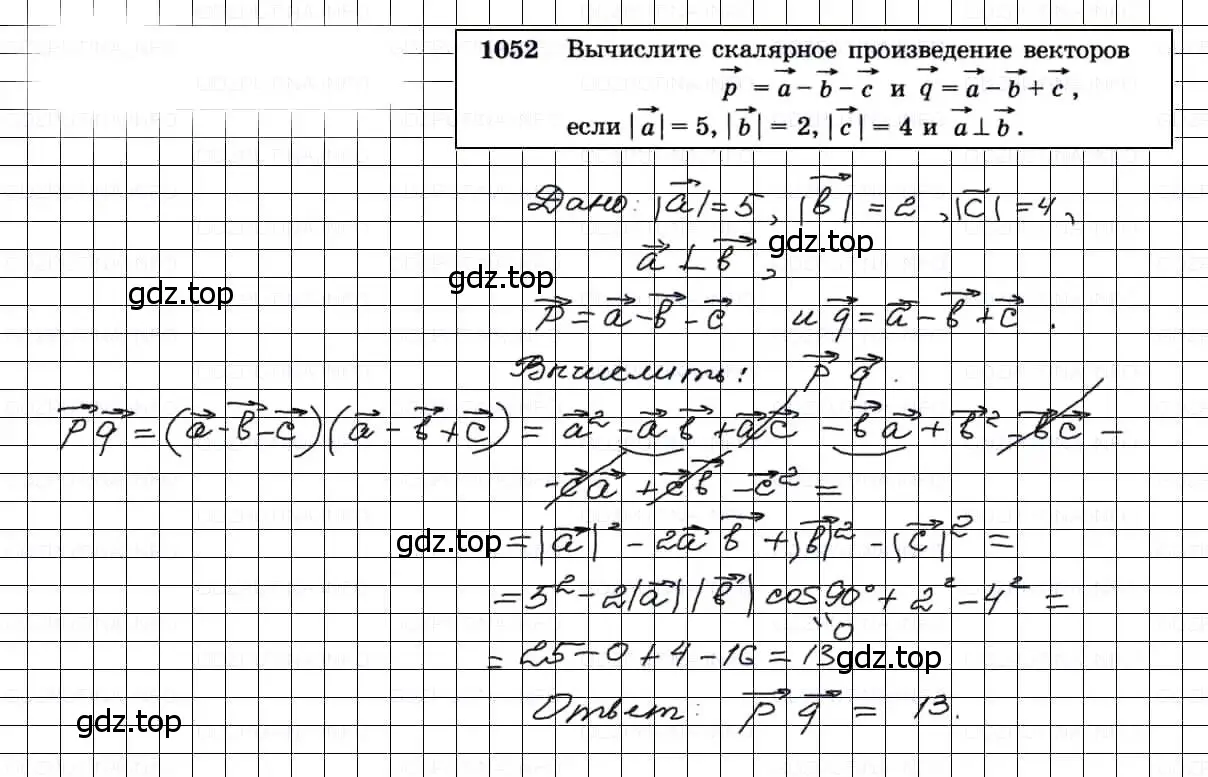 1052 Вычислите скалярное произведение векторов
p⃗ = a⃗ – b⃗ – c⃗ и q⃗ = a⃗ – b⃗ + c⃗,
если |a⃗| = 5, |b⃗| = 2, |c⃗| = 4 и a⃗ ⊥ b⃗.
Дано: |a⃗| = 5, |b⃗| = 2, |c⃗| = 4,
gdz.top
a⃗ ⊥ b⃗,
gdz.top
gdz.top
p⃗ = a⃗ - b⃗ - c⃗ и q⃗ = a⃗ - b⃗ + c⃗.
Вычислить: p⃗ q⃗.
p⃗ q⃗ = (a⃗ - b⃗ - c⃗)(a⃗ - b⃗ + c⃗) = a⃗² - a⃗ b⃗ + a⃗ c⃗ - b⃗ a⃗ + b⃗² - b⃗ c⃗ -
- c⃗ a⃗ + c⃗ b⃗ - c⃗² =
gdz.top
= |a⃗|² - 2a⃗ b⃗ + |b⃗|² - |c⃗|² =
= 5² - 2|a⃗| |b⃗| cos 90° + 2² - 4² =
0
= 25 - 0 + 4 - 16 = 13
gdz.top
Ответ: p⃗ q⃗ = 13.
gdz.top